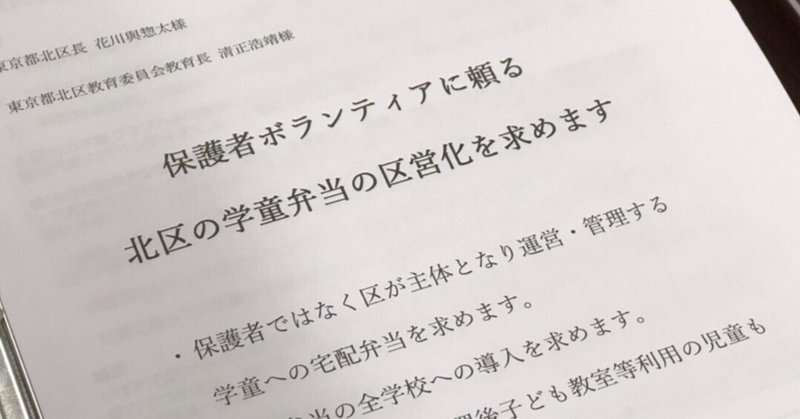 東京都北区長 花川與惣太様
東京都北区教育委員会教育長 清正浩靖様
保護者ボランティアに頼る
北区の学童弁当の区営化を求めます
・保護者ではなく区が主体となり運営・管理する
学童への宅配弁当を求めます。
弁当の全学校への導入を求めます。
後子ども教室等利用の児童も